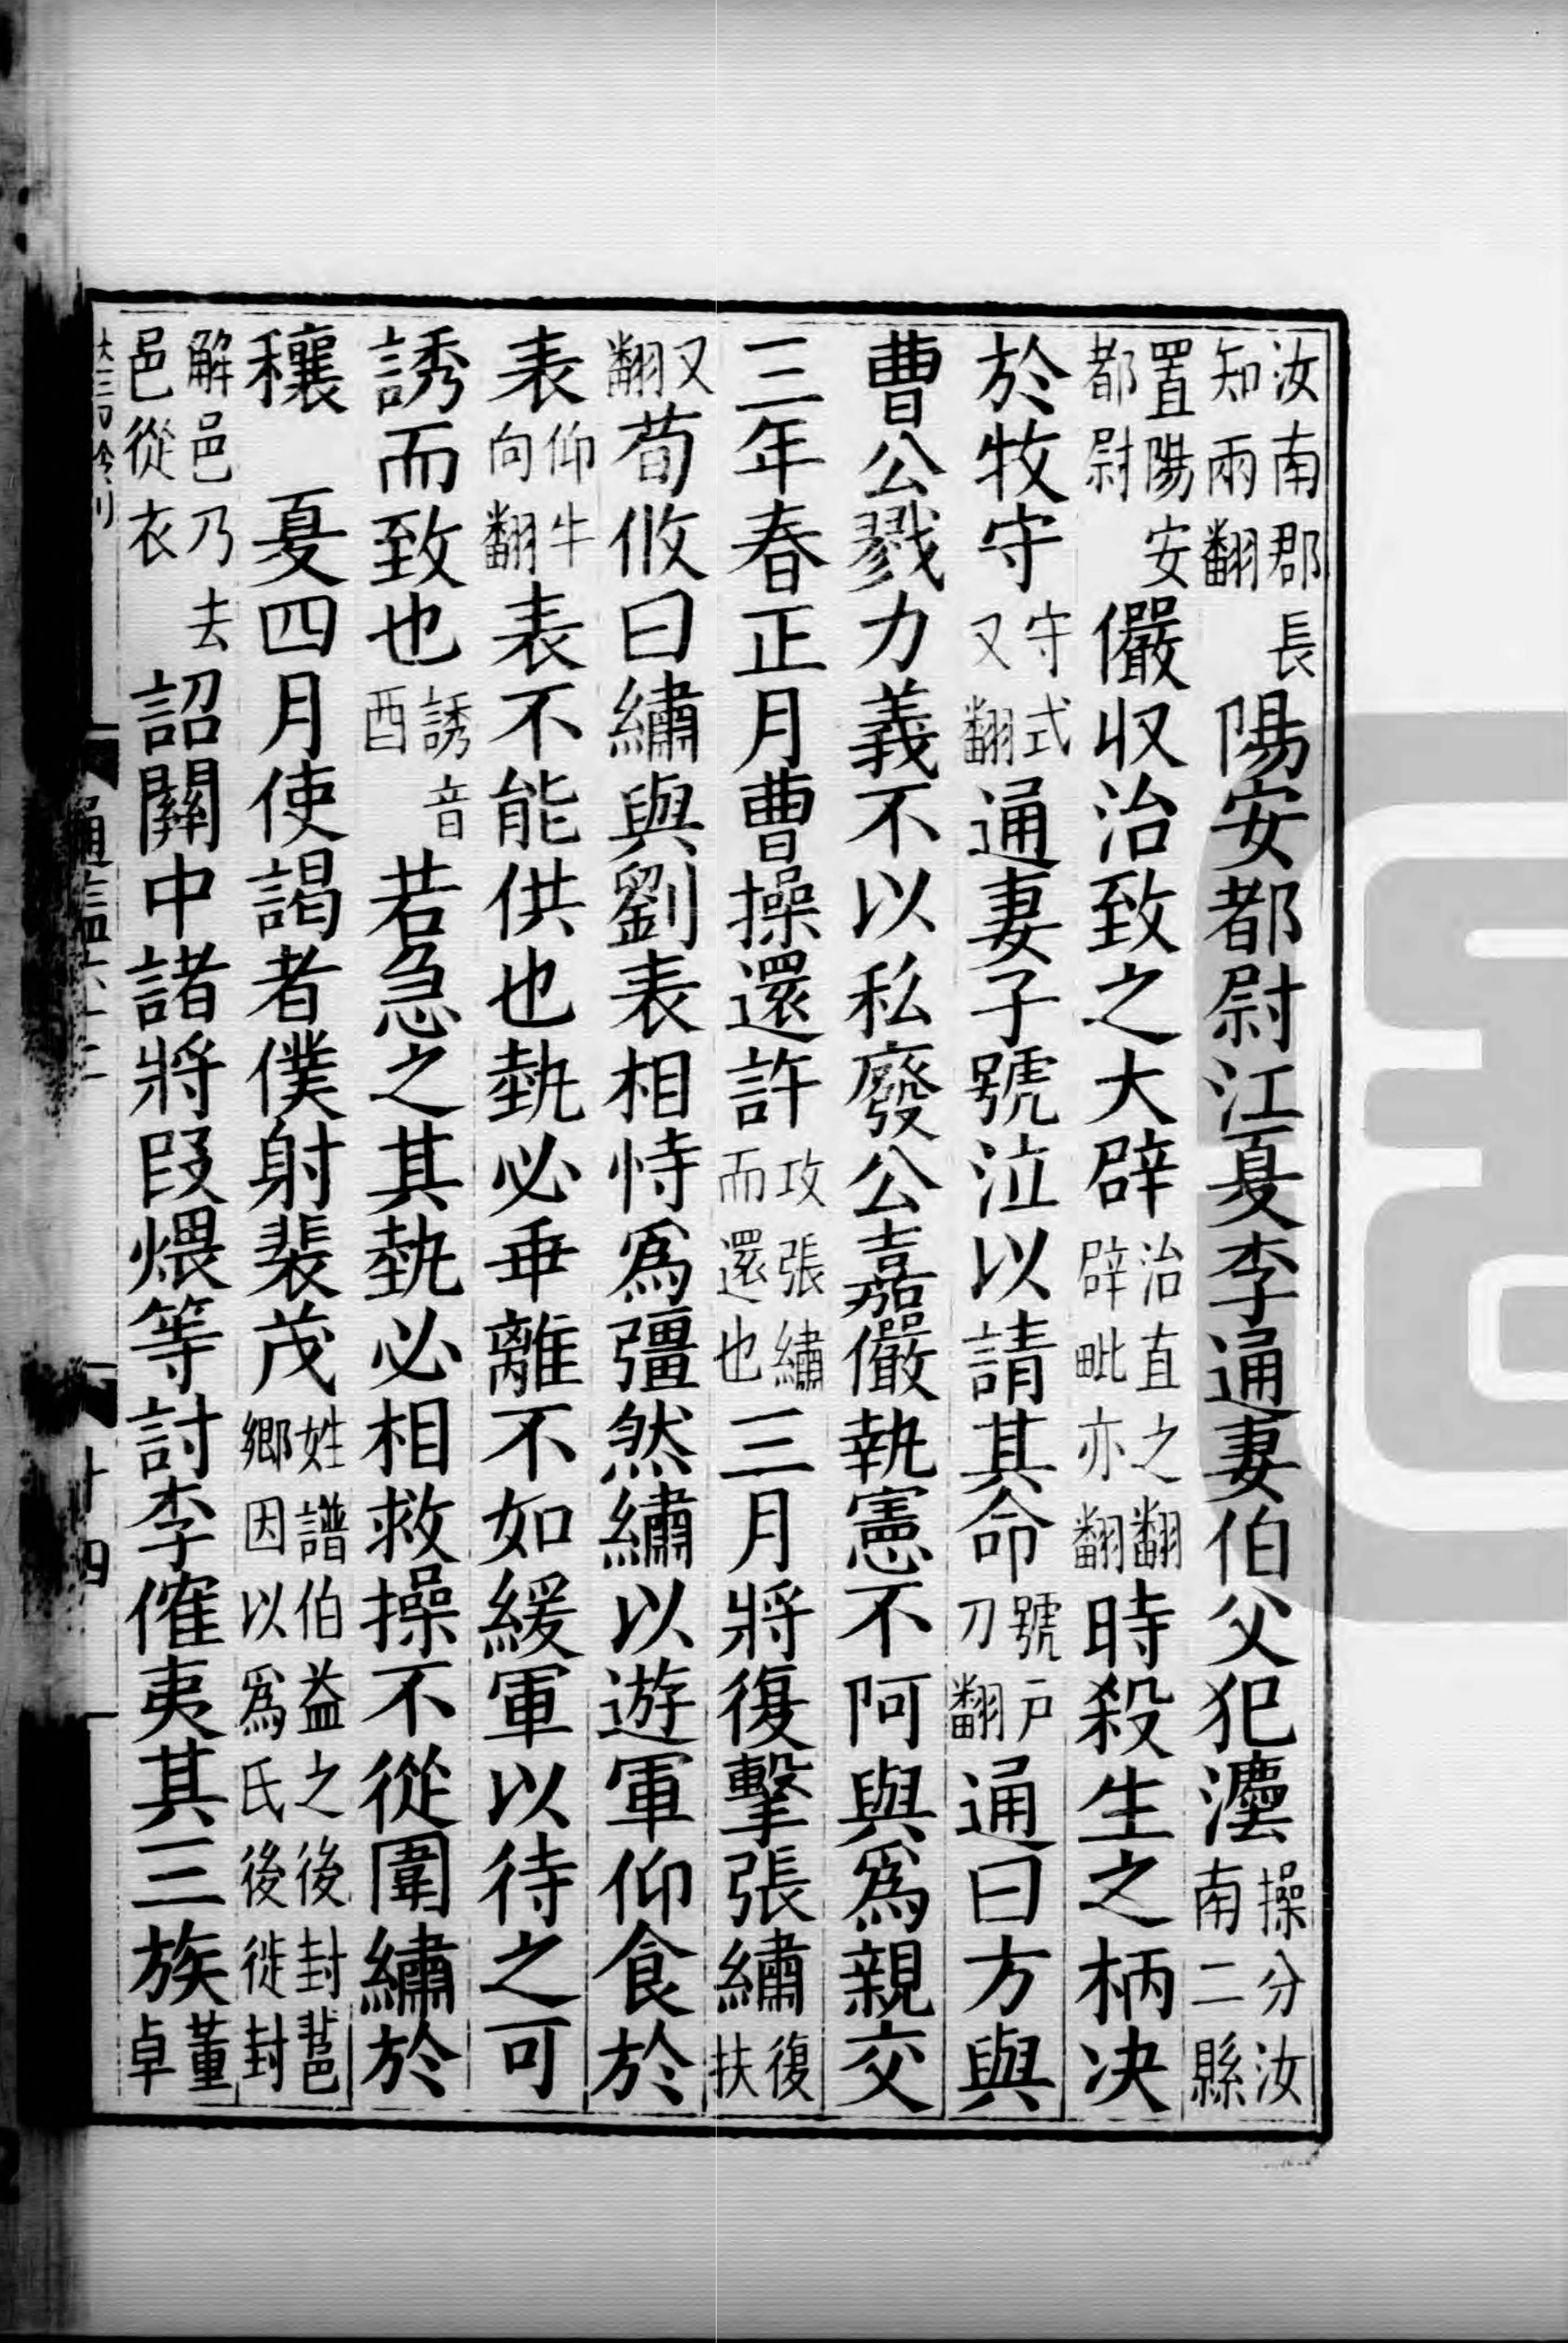 汝南郡長知兩翻陽安都尉江夏李通妻伯父犯灋操分汝南二縣
置陽安都尉儼収治致之大辟治直之翻辟毗亦翻時殺生之柄决
於牧守守式又翻通妻子號泣以請其命號戶刀翻通曰方與
曹公戮力義不以私廢公嘉儼執憲不阿與爲親交
三年春正月曹操還許攻張繡而還也三月將復擊張繡復扶
又翻荀攸曰繡與劉表相恃爲彊然繡以遊軍仰食於
表仰牛向翻表不能供也埶必乖離不如緩軍以待之可
誘而致也誘音酉若急之其埶必相救操不從圍繡於
穰 夏四月使謁者僕射裴茂姓譜伯益之後封𨛬鄉因以爲氏後徙封
解邑乃去邑從衣詔關中諸將段煨等討李傕夷其三族董卓
通鑑六十二
十四